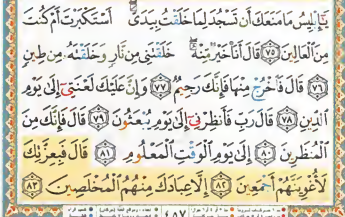 يَٰٓإِبۡلِيسُ مَا مَنَعَكَ أَن تَسۡجُدَ لِمَا خَلَقۡتُ بِيَدَيَّۖ أَسۡتَكۡبَرۡتَ أَمۡ كُنتَ
مِنَ ٱلۡعَالِينَ ٧٥ قَالَ أَنَا۠ خَيۡرٞ مِّنۡهُ خَلَقۡتَنِي مِن نَّارٖ وَخَلَقۡتَهُۥ مِن طِينٖ
٧٦ قَالَ فَٱخۡرُجۡ مِنۡهَا فَإِنَّكَ رَجِيمٞ ٧٧ وَإِنَّ عَلَيۡكَ لَعۡنَتِيٓ إِلَىٰ يَوۡمِ
ٱلدِّينِ ٧٨ قَالَ رَبِّ فَأَنظِرۡنِيٓ إِلَىٰ يَوۡمِ يُبۡعَثُونَ ٧٩ قَالَ فَإِنَّكَ مِنَ
ٱلۡمُنظَرِينَ ٨٠ إِلَىٰ يَوۡمِ ٱلۡوَقۡتِ ٱلۡمَعۡلُومِ ٨١ قَالَ فَبِعِزَّتِكَ
لَأُغۡوِيَنَّهُمۡ أَجۡمَعِينَ ٨٢ إِلَّا عِبَادَكَ مِنۡهُمُ ٱلۡمُخۡلَصِينَ ٨٣
٤٥٧